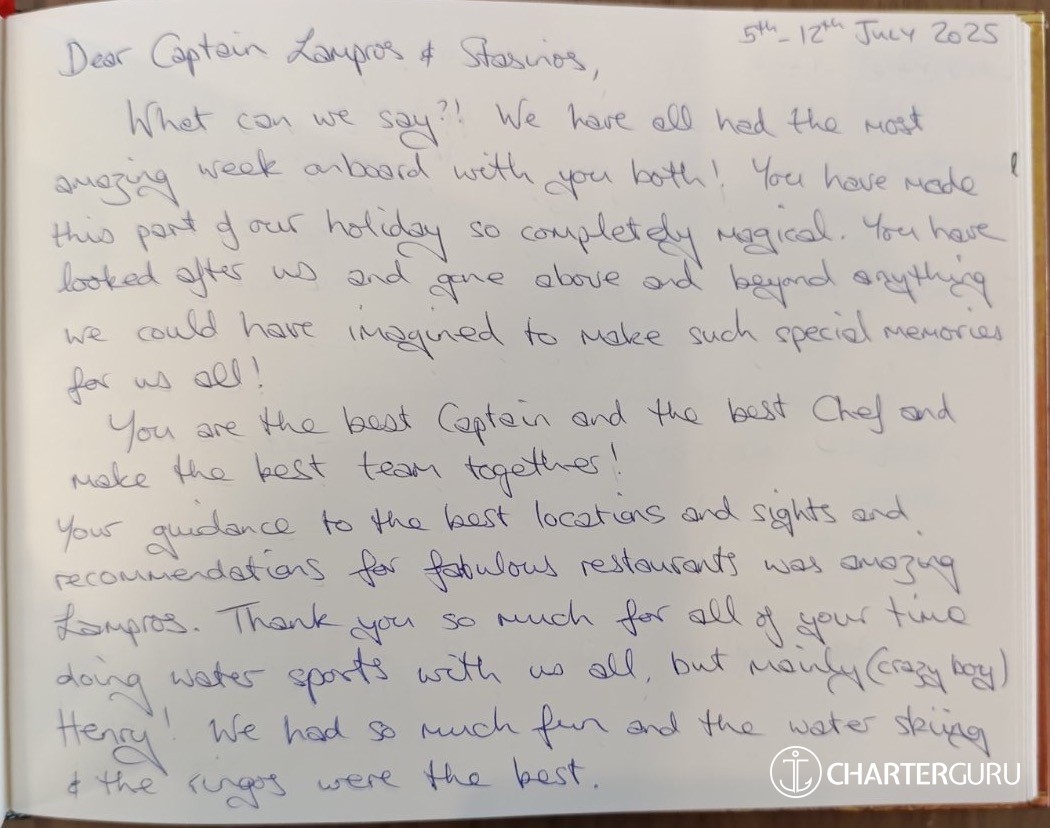 5th - 12th July 2025
Dear Captain Lampros & Stasinos,
What can we say?! We have all had the most
amazing week onboard with you both! You have made
this part of our holiday so completely magical. You have
looked after us and gone above and beyond anything
we could have imagined to make such special memories
for us all!
You are the best Captain and the best Chef and
make the best team together!
Your guidance to the best locations and sights and
recommendations for fabulous restaurants was amazing
Lampros. Thank you so much for all of your time
doing water sports with us all, but mainly (crazy boy)
Henry! We had so much fun and the water skiing
& the ringos were the best.
CHARTERGURU